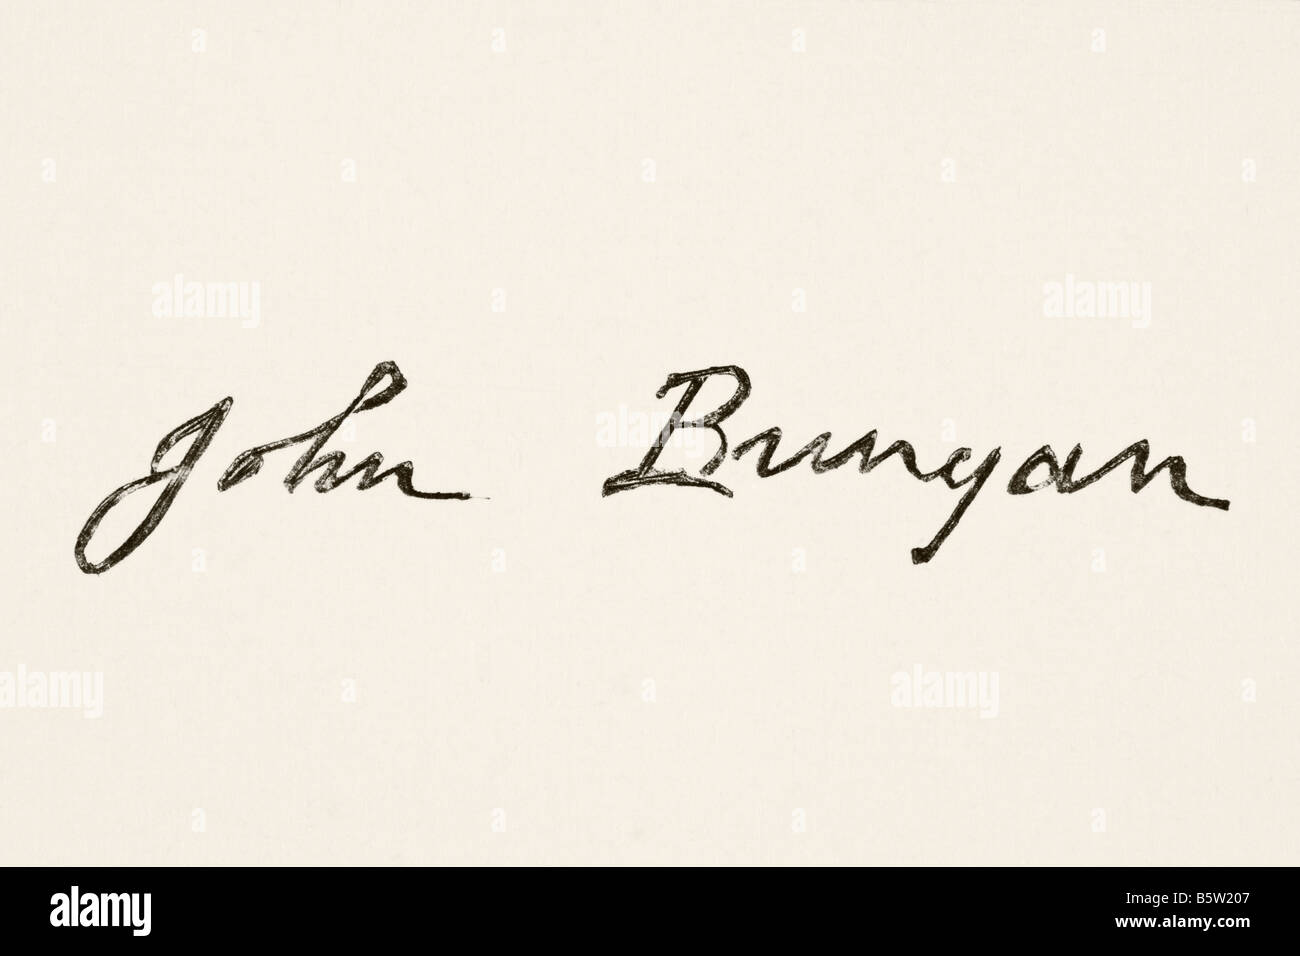 John Bunyan
alamy
alamy
alamy
alamy
alamy
alamy
Image ID: B5W207
www.alamy.com